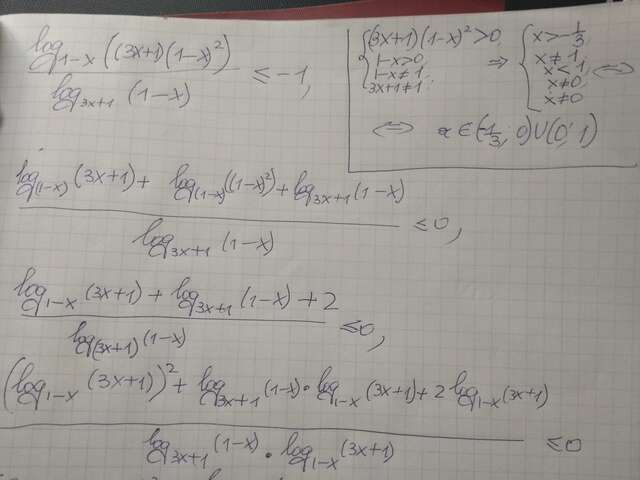 log_{1-x}((3x+1)(1-x)²) / log_{3x+1}(1-x) ≤ -1,
{ (3x+1)(1-x)²>0, 1-x>0, 1-x≠1, 3x+1≠1 ⇒ { x>-1/3, x≠1, x<1, x≠0, x≠0 ⇔
⇔ x∈(-1/3; 0)∪(0; 1)
(log_{(1-x)}(3x+1) + log_{(1-x)}((1-x)²) + log_{3x+1}(1-x)) / log_{3x+1}(1-x) ≤0,
(log_{1-x}(3x+1) + log_{3x+1}(1-x) + 2) / log_{(3x+1)}(1-x) ≤0,
((log_{1-x}(3x+1))² + log_{3x+1}(1-x)·log_{1-x}(3x+1) + 2 log_{1-x}(3x+1)) / (log_{3x+1}(1-x) · log_{1-x}(3x+1)) ≤0